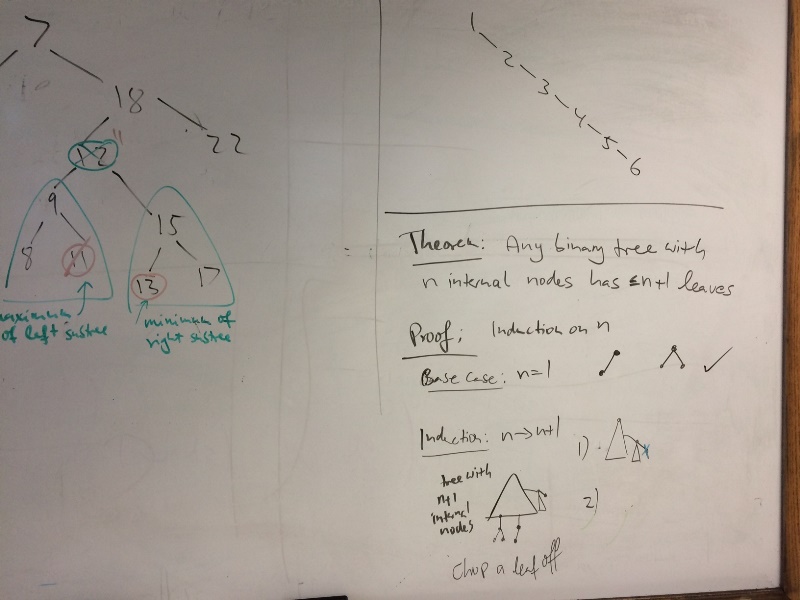 7
18
12 11
22
9
15
8
11
13
17
of left subtree
minimum of
right subtree
1
2
3
4
5
6
Theorem: Any binary tree with
n internal nodes has ≤n+1 leaves
Proof: Induction on n
Base Case: n=1
Induction: n→n+1
1)
tree with
n+1
internal
nodes
2)
Chop a leaf off